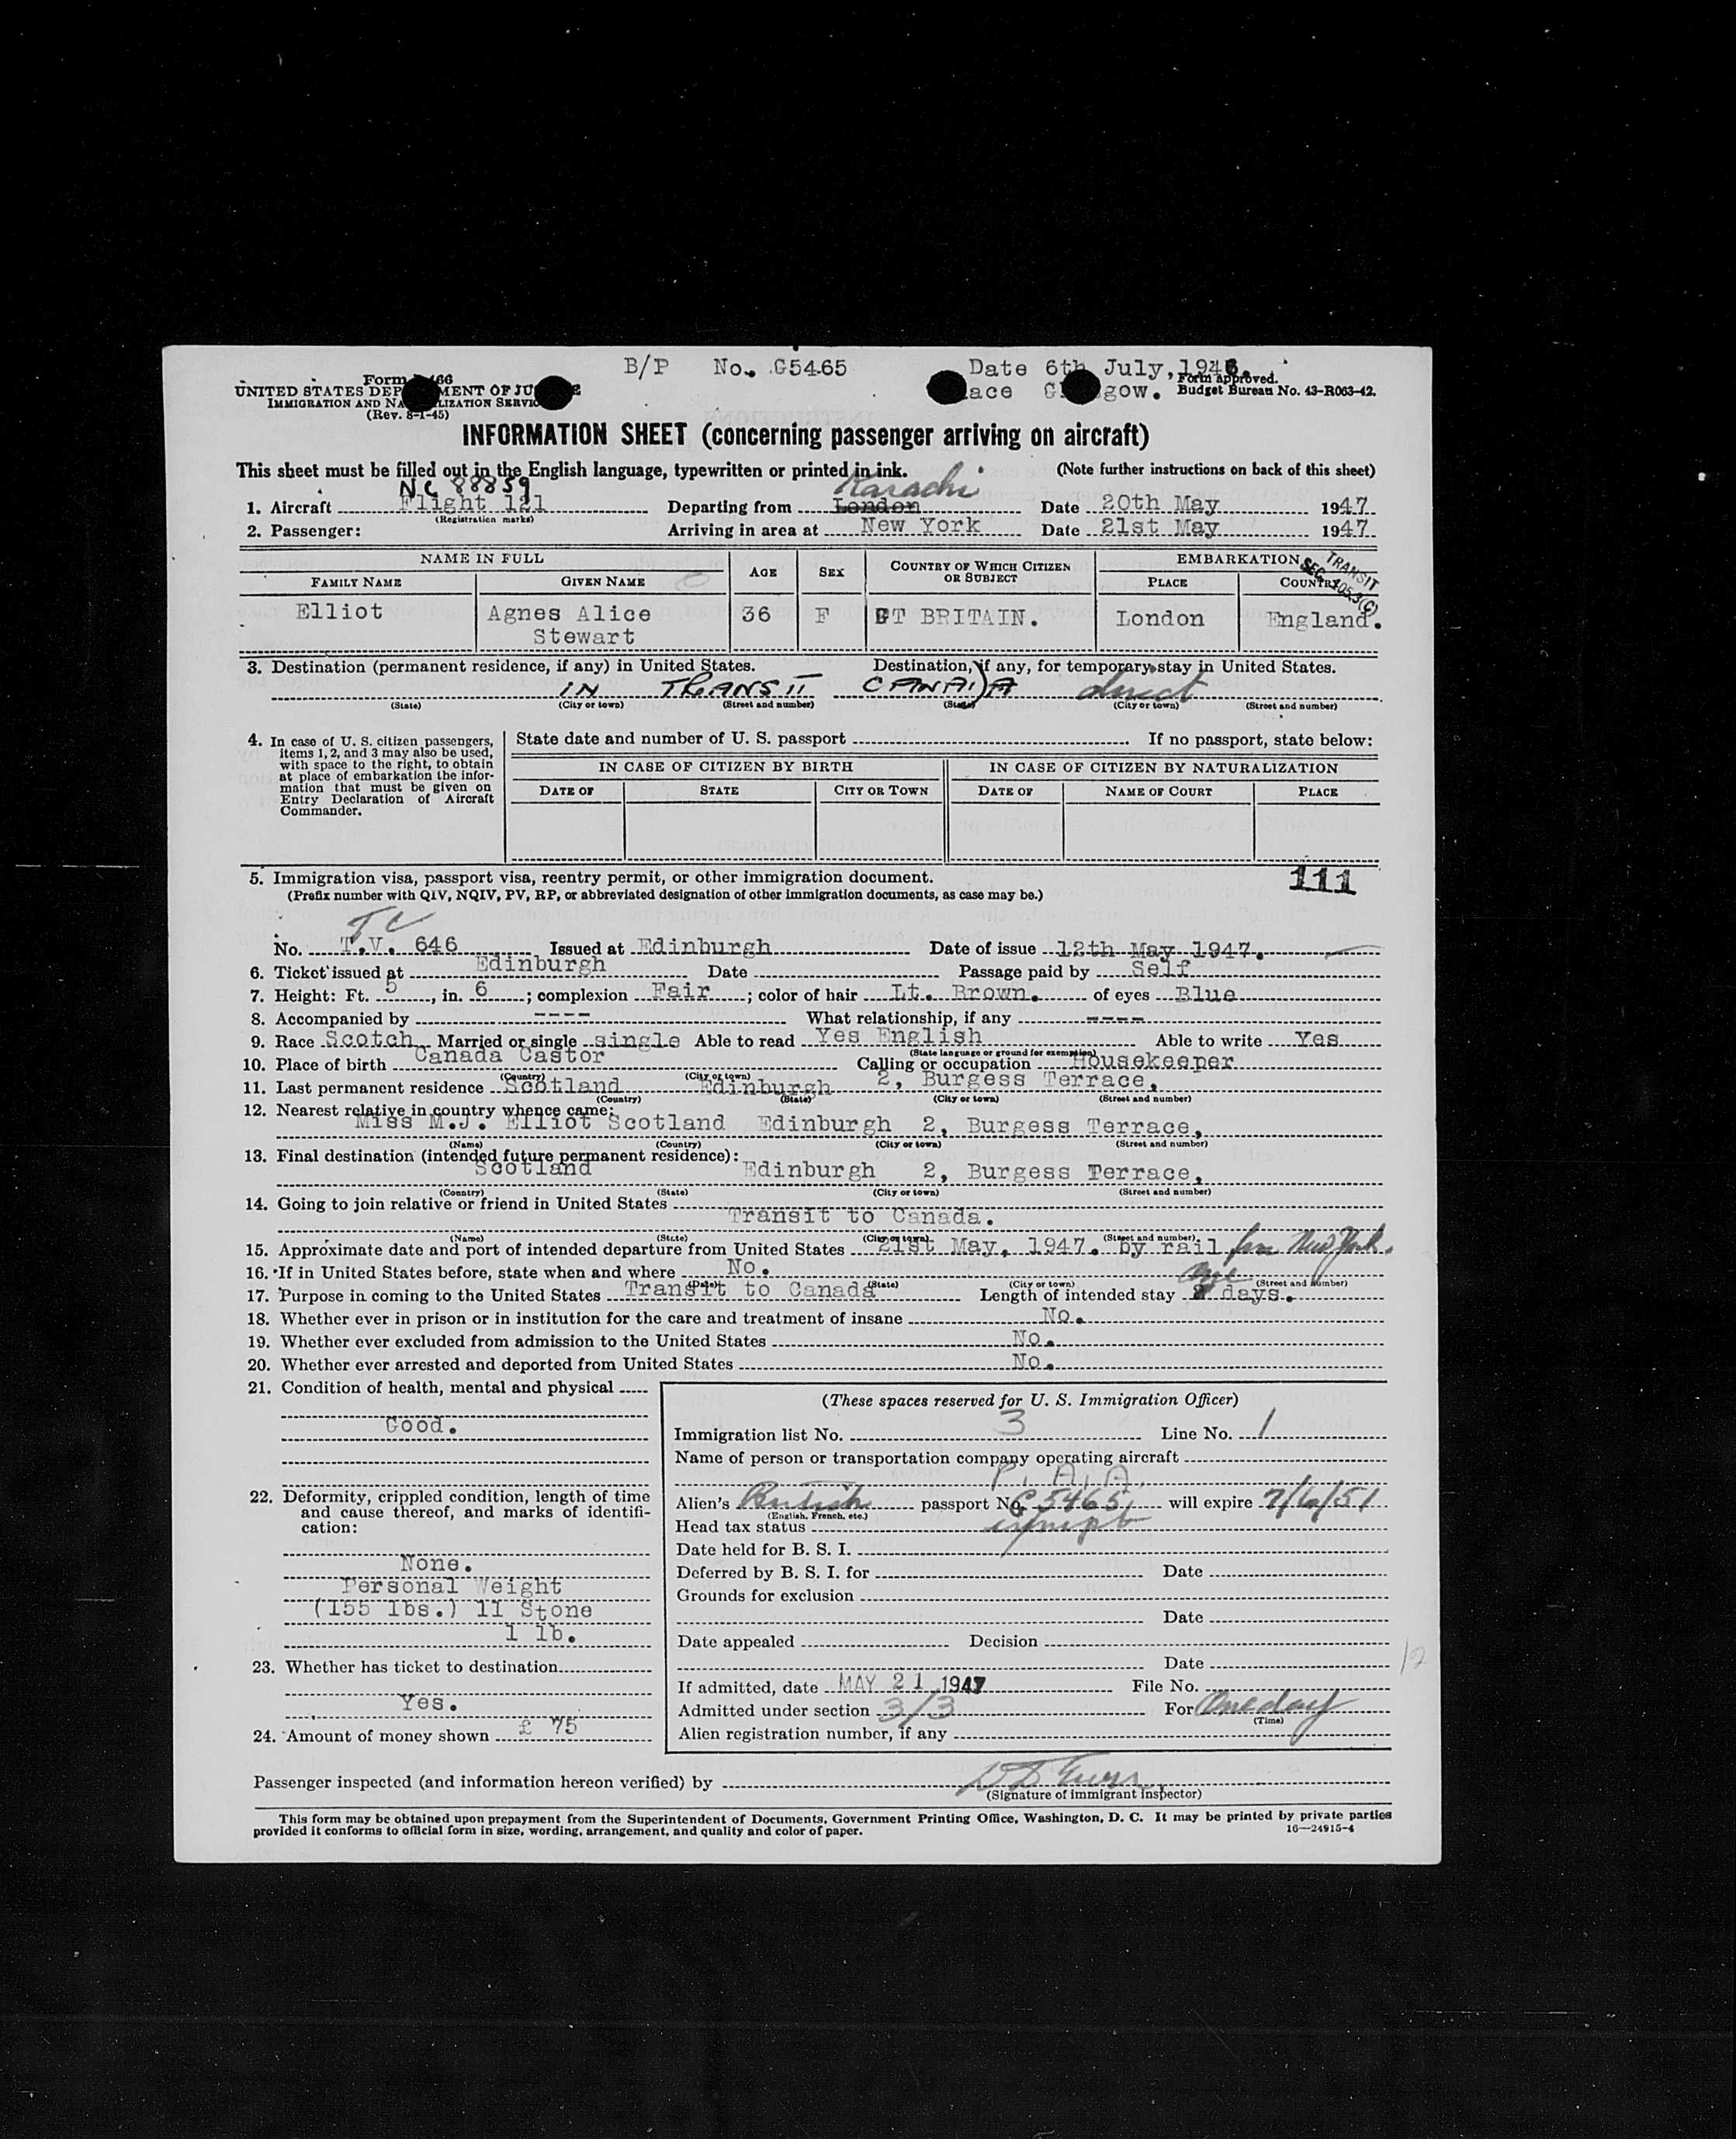 B/P No. G5465 Date 6th July, 1946.
Form 466 Form approved.
UNITED STATES DEP MENT OF JU E ace Gl gow. Budget Bureau No. 43-R063-42.
IMMIGRATION AND NA LIZATION SERVIC
(Rev. 8-1-45)
INFORMATION SHEET (concerning passenger arriving on aircraft)
This sheet must be filled out in the English language, typewritten or printed in ink. (Note further instructions on back of this sheet)
NC 88859 Karachi
1. Aircraft Flight 121 Departing from London Date 20th May 1947
(Registration marks)
2. Passenger: Arriving in area at New York Date 21st May 1947
NAME IN FULL AGE SEX COUNTRY OF WHICH CITIZEN OR SUBJECT EMBARKATION
TRANSIT
SEC. 105.3(C)
FAMILY NAME GIVEN NAME PLACE COUNTRY
Elliot Agnes Alice 36 F GT BRITAIN. London England.
Stewart
3. Destination (permanent residence, if any) in United States. Destination, if any, for temporary stay in United States.
IN TRANSIT CANADA direct
(State) (City or town) (Street and number) (State) (City or town) (Street and number)
4. In case of U. S. citizen passengers, items 1, 2, and 3 may also be used, with space to the right, to obtain at place of embarkation the information that must be given on Entry Declaration of Aircraft Commander.
State date and number of U. S. passport If no passport, state below:
IN CASE OF CITIZEN BY BIRTH IN CASE OF CITIZEN BY NATURALIZATION
DATE OF STATE CITY OR TOWN DATE OF NAME OF COURT PLACE
5. Immigration visa, passport visa, reentry permit, or other immigration document. 111
(Prefix number with QIV, NQIV, PV, RP, or abbreviated designation of other immigration documents, as case may be.)
TC
No. T.V. 646 Issued at Edinburgh Date of issue 12th May 1947.
6. Ticket issued at Edinburgh Date Passage paid by Self
7. Height: Ft. 5, in. 6; complexion Fair; color of hair Lt. Brown. of eyes Blue
8. Accompanied by ---- What relationship, if any ----
9. Race Scotch Married or single single Able to read Yes English Able to write Yes
(State language or ground for exemption)
10. Place of birth Canada Castor Calling or occupation Housekeeper
(Country) (City or town)
11. Last permanent residence Scotland Edinburgh 2, Burgess Terrace,
(Country) (State) (City or town) (Street and number)
12. Nearest relative in country whence came:
Miss M.J. Elliot Scotland Edinburgh 2, Burgess Terrace,
(Name) (Country) (City or town) (Street and number)
13. Final destination (intended future permanent residence):
Scotland Edinburgh 2, Burgess Terrace,
(Country) (State) (City or town) (Street and number)
14. Going to join relative or friend in United States
Transit to Canada.
(Name) (State) (City or town) (Street and number)
15. Approximate date and port of intended departure from United States 21st May, 1947. by rail from New York.
16. If in United States before, state when and where No.
(Date) (State) (City or town) (Street and number)
one
17. Purpose in coming to the United States Transit to Canada Length of intended stay days.
18. Whether ever in prison or in institution for the care and treatment of insane No.
19. Whether ever excluded from admission to the United States No.
20. Whether ever arrested and deported from United States No.
21. Condition of health, mental and physical
Good.
22. Deformity, crippled condition, length of time and cause thereof, and marks of identification:
None.
Personal Weight
(155 lbs.) 11 Stone
1 lb.
23. Whether has ticket to destination
Yes.
24. Amount of money shown £ 75
(These spaces reserved for U. S. Immigration Officer)
Immigration list No. 3 Line No. 1
Name of person or transportation company operating aircraft
P. A. A.
Alien's British passport No. G5465 will expire 7/6/51
(English, French, etc.)
Head tax status exempt
Date held for B. S. I.
Deferred by B. S. I. for Date
Grounds for exclusion
Date
Date appealed Decision
Date
If admitted, date MAY 21 1947 File No.
Admitted under section 3/3 For One day
(Time)
Alien registration number, if any
Passenger inspected (and information hereon verified) by
(Signature of immigrant inspector)
This form may be obtained upon prepayment from the Superintendent of Documents, Government Printing Office, Washington, D. C. It may be printed by private parties
provided it conforms to official form in size, wording, arrangement, and quality and color of paper. 16—24915-4
12